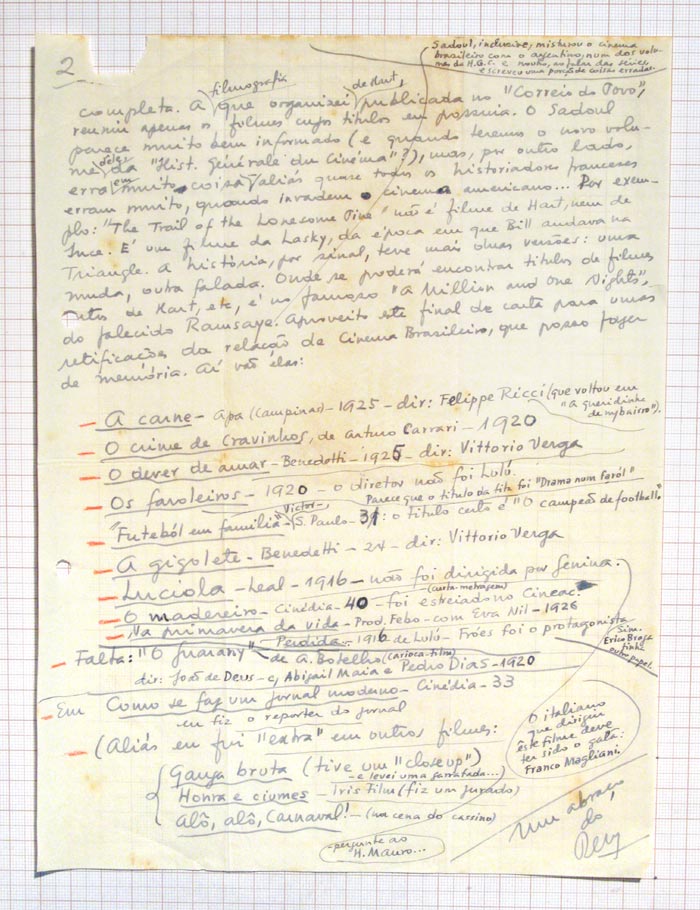 2
Sadoul, inclusive, misturou o cinema
brasileiro com o argentino, num dos volu-
mes da H.G.C. e noutro, ao falar das séries
escreveu uma porção de coisas erradas.
filmografia
de Hart,
completa. A que organizei publicada no "Correio do Povo",
reuniu apenas os filmes cujos titulos eu possuia. O Sadoul
parece muito bem informado (e quando teremos o novo volu-
me dele da "Hist. Générale du Cinéma"?), mas, por outro lado,
erra em muita coisa, aliás quase todos os historiadores franceses
erram muito, quando invadem o cinema americano... Por exem-
plo: "The Trail of the Lonesome Pine" não é filme de Hart, nem de
Ince. É um filme da Lasky, da época em que Bill andava na
Triangle. A história, por sinal, teve mais duas versões: uma
muda, outra falada. Onde se poderá encontrar titulos de filmes
de Hart, etc, é no famoso "A Million and One Nights",
do falecido Ramsaye. Aproveito este final de carta para umas
retificações da relação de Cinema Brasileiro, que posso fazer
de memória. Aí vão elas:
— A carne — Apa (Campinas) — 1925 — dir: Felippe Ricci (que voltou em
"A queridinha
do meu bairro").
— O crime de Cravinhos, de Arturo Carrari — 1920
— O dever de amar — Benedetti — 1925 — dir: Vittorio Verga
— Os faroleiros — 1920 — o diretor não foi Lulú.
Parece que o titulo da fita foi "Drama num Farol"
— "Futeból em familia" — Victor — S. Paulo — 31: o titulo certo é "O campeão de football"
— A gigolete — Benedetti — 24 — dir: Vittorio Verga
— Luciola — Leal — 1916 — não foi dirigida por Senina.
(curta-metragem)
— O madereiro — Cinédia — 40 — foi estreiado no Cineac.
— Na primavera da vida — Prod. Febo — com Eva Nil — 1926
Perdida — 1916 de Lulú — Fróes foi o protagonista
Sim.
Erico Braga
tinha
outro papel.
— Falta: "O Guarany" de A. Botelho (Carioca-film)
dir: João de Deus — c/ Abigail Maia e Pedro Dias — 1920
— Em Como se faz um jornal moderno — Cinédia — 33
eu fiz o reporter do jornal
— (Aliás eu fui "extra" em outros filmes:
O italiano
que dirigiu
este filme deve
ter sido o galã:
Franco Magliani.
Ganga bruta (tive um "close up")
— e levei uma garrafada...)
Honra e ciumes — Iris Film (fiz um jurado)
Alô, alô, Carnaval! — (na cena do cassino)
pergunte ao
H. Mauro...
Um abraço
do
Pery